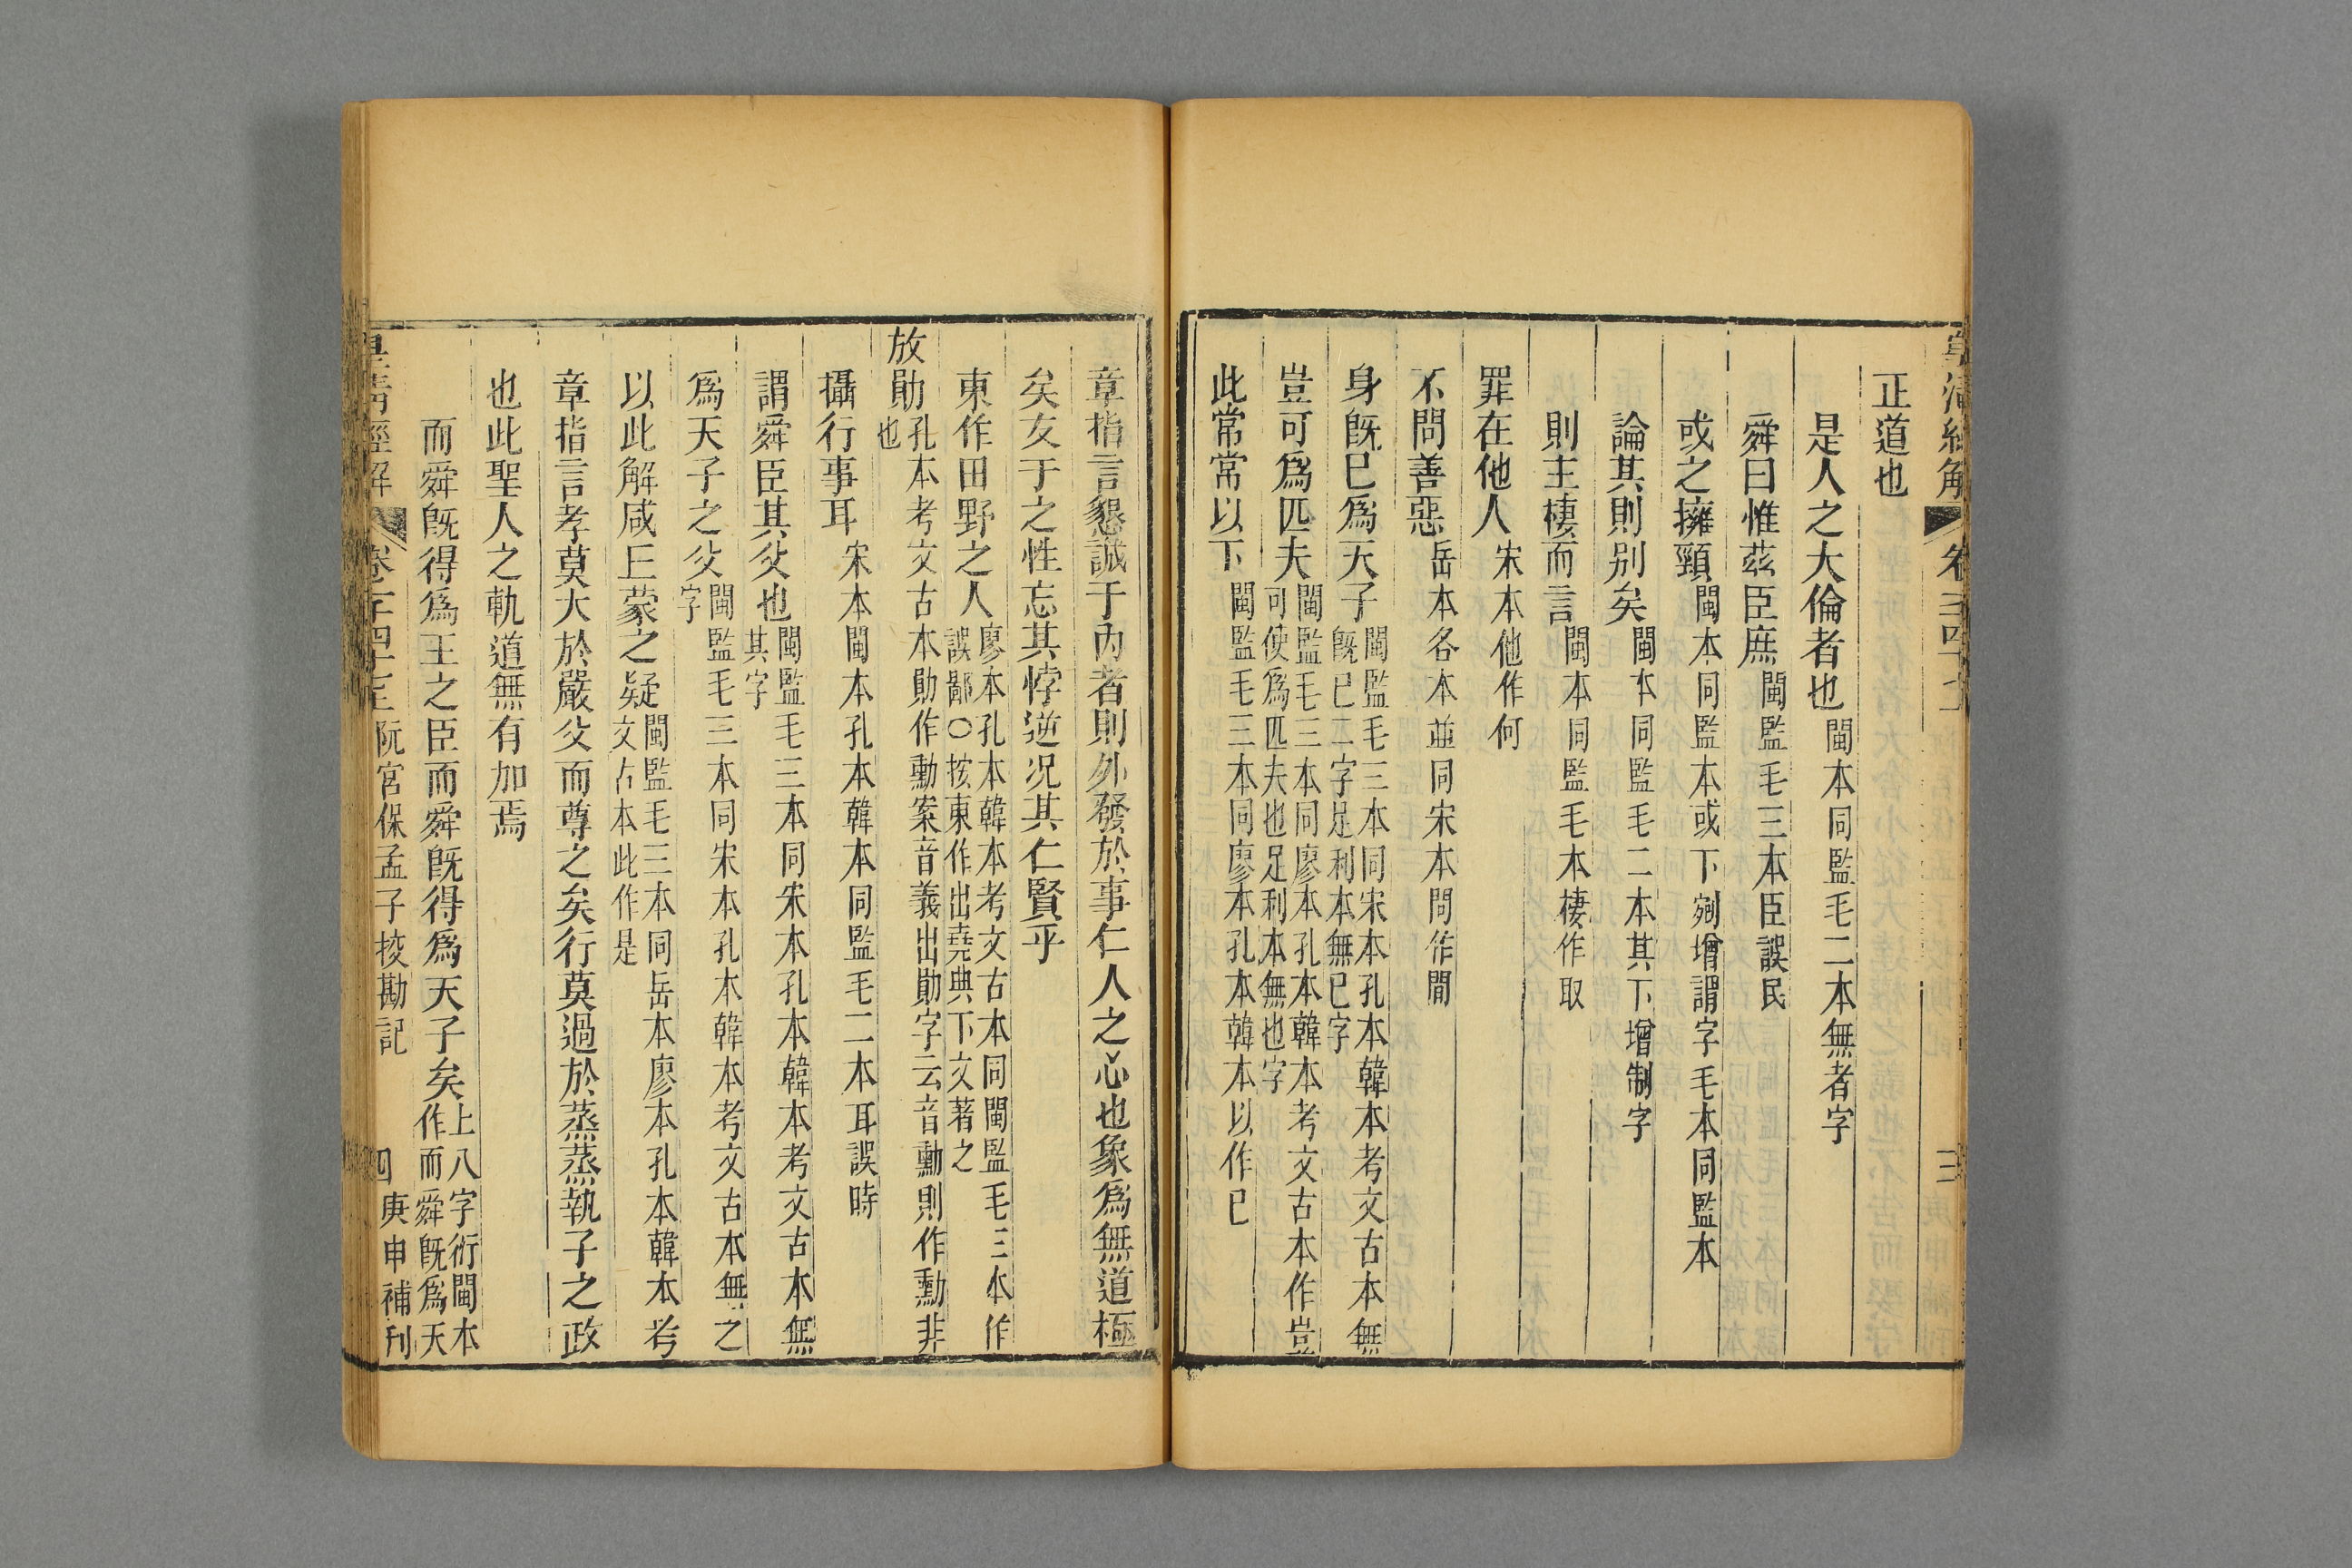 正道也
是人之大倫者也閩本同監毛二本無者字
舜曰惟茲臣庶閩監毛三本臣誤民
或之擁頸閩本同監本或下剜增謂字毛本同監本
論其則別矣閩本同監毛二本其下增制字
則主棲而言閩本同監毛本棲作取
罪在他人宋本他作何
不問善惡岳本各本並同宋本問作間
身旣已爲天子閩監毛三本同宋本孔本韓本考文古本無旣已二字足利本無已字
豈可爲匹夫閩監毛三本同廖本孔本韓本考文古本作豈可使爲匹夫也足利本無也字
此常常以下閩監毛三本同廖本孔本韓本以作已
章指言懇誠于內者則外發於事仁人之心也象爲無道極
矣友于之性忘其悖逆况其仁賢乎
東作田野之人廖本孔本韓本考文古本同閩監毛三本作誤鄙〇按東作出堯典下文著之
放勛孔本考文古本勛作勳案音義出勛字云音勳則作勳非也
攝行事耳宋本閩本孔本韓本同監毛二本耳誤時
謂舜臣其父也閩監毛三本同宋本孔本韓本考文古本無其字
爲天子之父閩監毛三本同宋本孔本韓本考文古本無之字
以此解咸丘蒙之疑閩監毛三本同岳本廖本孔本韓本考文古本此作是
章指言孝莫大於嚴父而尊之矣行莫過於蒸蒸執子之政
也此聖人之軌道無有加焉
而舜旣得爲王之臣而舜旣得爲天子矣上八字衍閩本作而舜旣爲天
皇清經解 卷一千四十三 阮宮保孟子挍勘記 四 庚申補刊